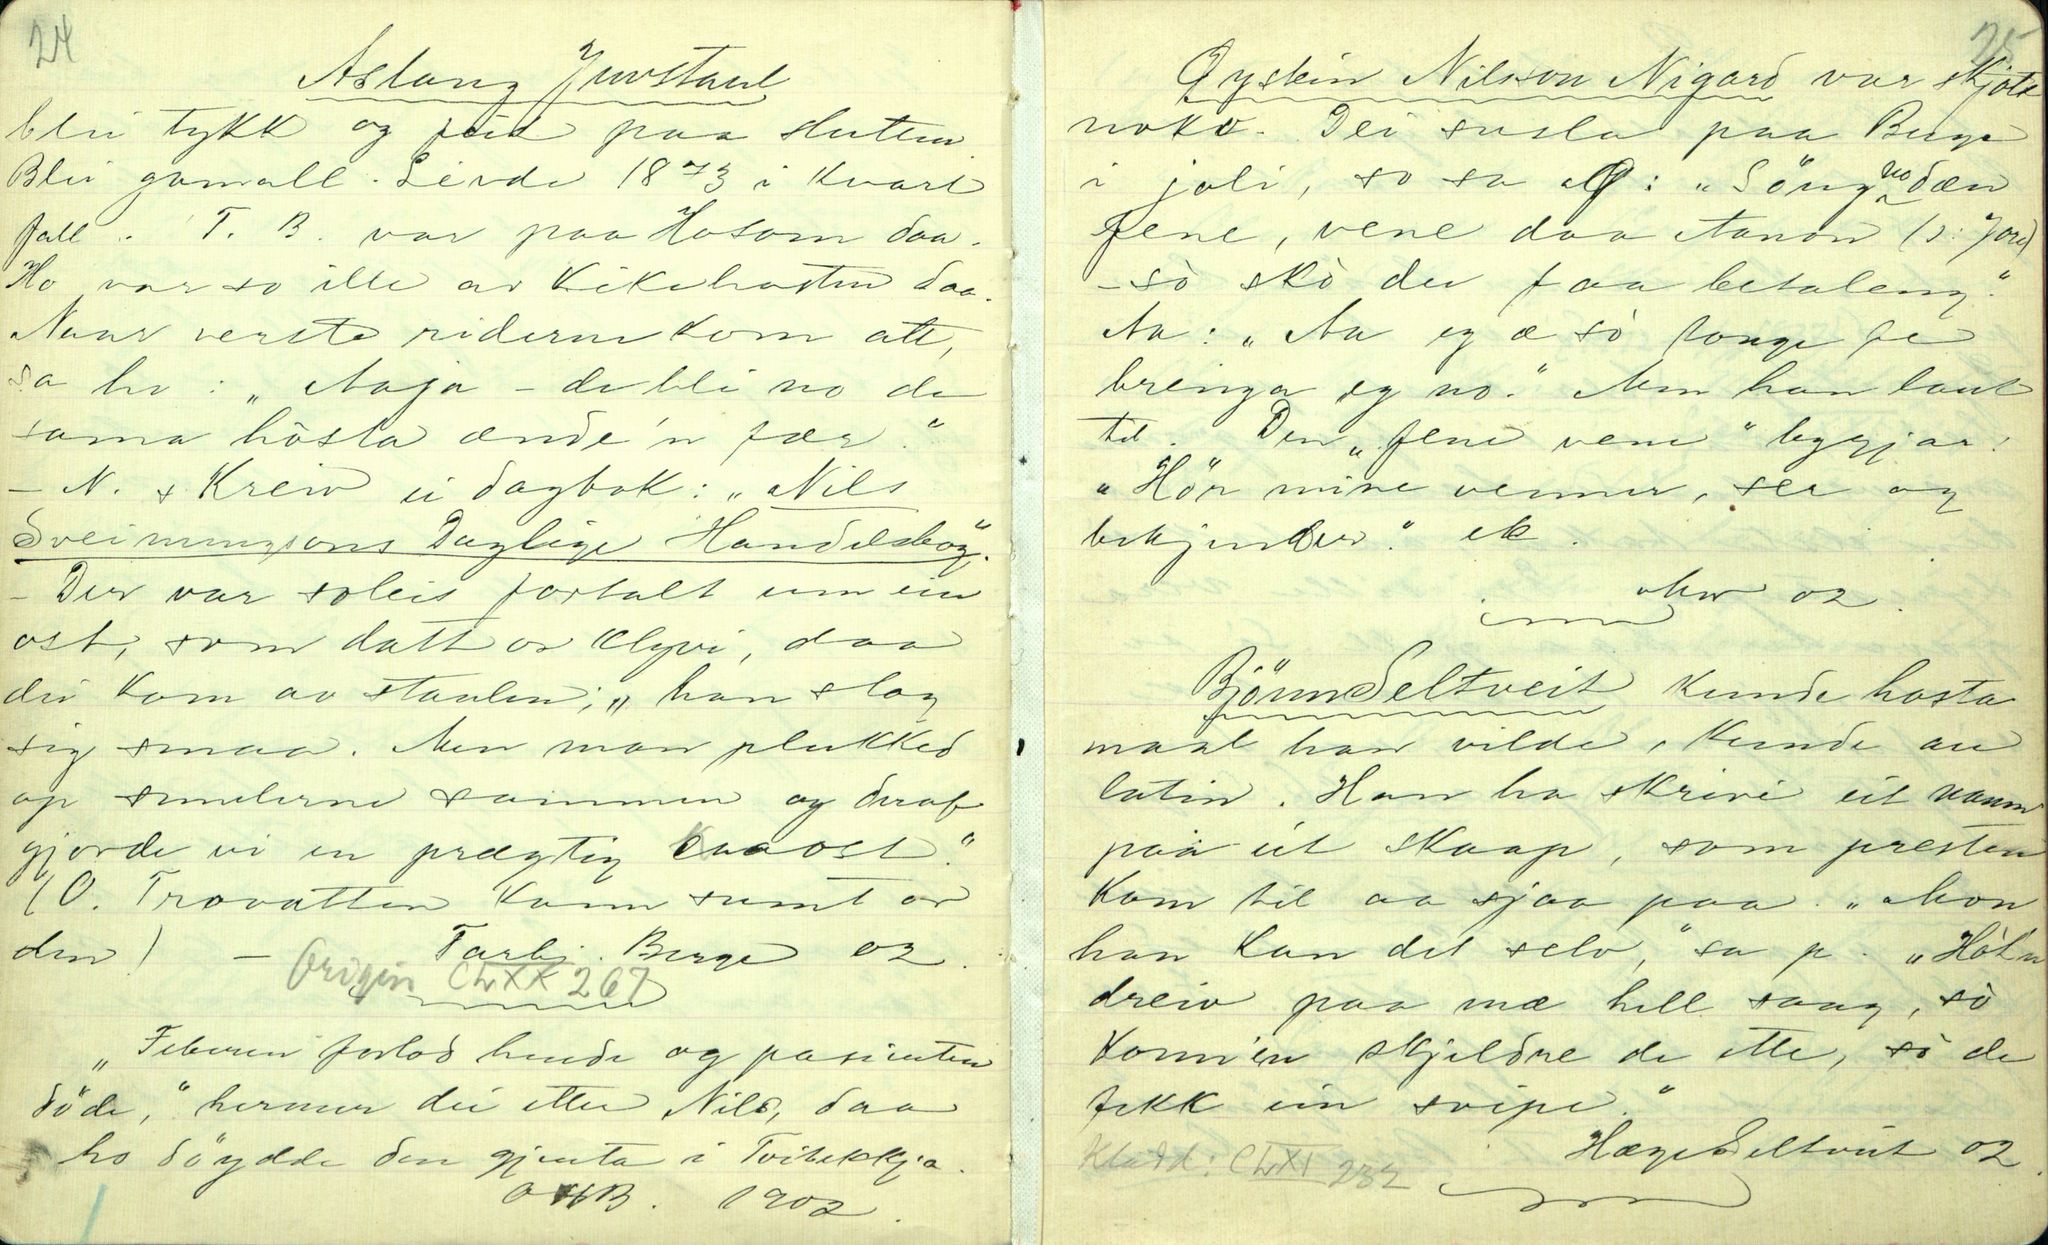 24
Aslaug Juvstaul
blei tykk og feid paa slutten.
Blei gamall. Livde 1873 i kvart
fall. T. B. var paa Hosom daa.
Ho var so ille av kikehosten daa.
Naar verste riderne kom att,
sa ho: „Aaja – de bli no de
sama hósta ænde'n fær."
– N. skreiv ei dagbok: „Nils
Sveinungsons Daglige Handelsbog".
– Der var soleis fortalt um ein
ost, som datt or klyvi, daa
dei kom av staulen; „han slog
sig smaa. Men man plukked
op smulerne sammen og deraf
gjorde vi en prægtig Kaaost."
(O. Trovatten kann sumt or
den) – Tarbj. Berge 02.
Origin CLXX 267
„Feberen forlod hende og pasienten
döde," hermer dei etter Nils, daa
ho döydde den gjenta i Tvitekkja.
OHB. 1902.
25
Øystein Nilsson Nigard var skjote
noko. Dei susla paa Berge
i joli, so sa Ø: „Söng no dæn
fene, vene daa Aanon (ɔ: Jore)
– sò skò du faa betaleng".
Aa: „Aa eg æ sò tonge fe
brenga eg no." Men han laut
til. Den „fene vene" byrjar:
„Hör mine venner, ser og
bekjender." etc.
Mor 02.
Björn Seltveit kunde hosta
maal han vilde, kunde au
latin. Han ha skrivi eit namn
paa eit skaap, som presten
kom til aa sjaa paa. „Mon
han kan det selv," sa p. „Höl'n
dreiv paa mæ hell saag, sò
konn'en skjeldre de ette, sò de
fekk ein svipe."
Hæge Seltveit 02.
Kladd: CLXI 232